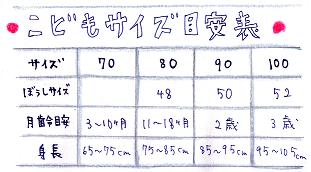 こどもサイズ目安表
サイズ 70 80 90 100
ぼうしサイズ 48 50 52
月齢目安 3~10ヶ月 11~18ヶ月 2歳 3歳
身長 65~75cm 75~85cm 85~95cm 95~105cm